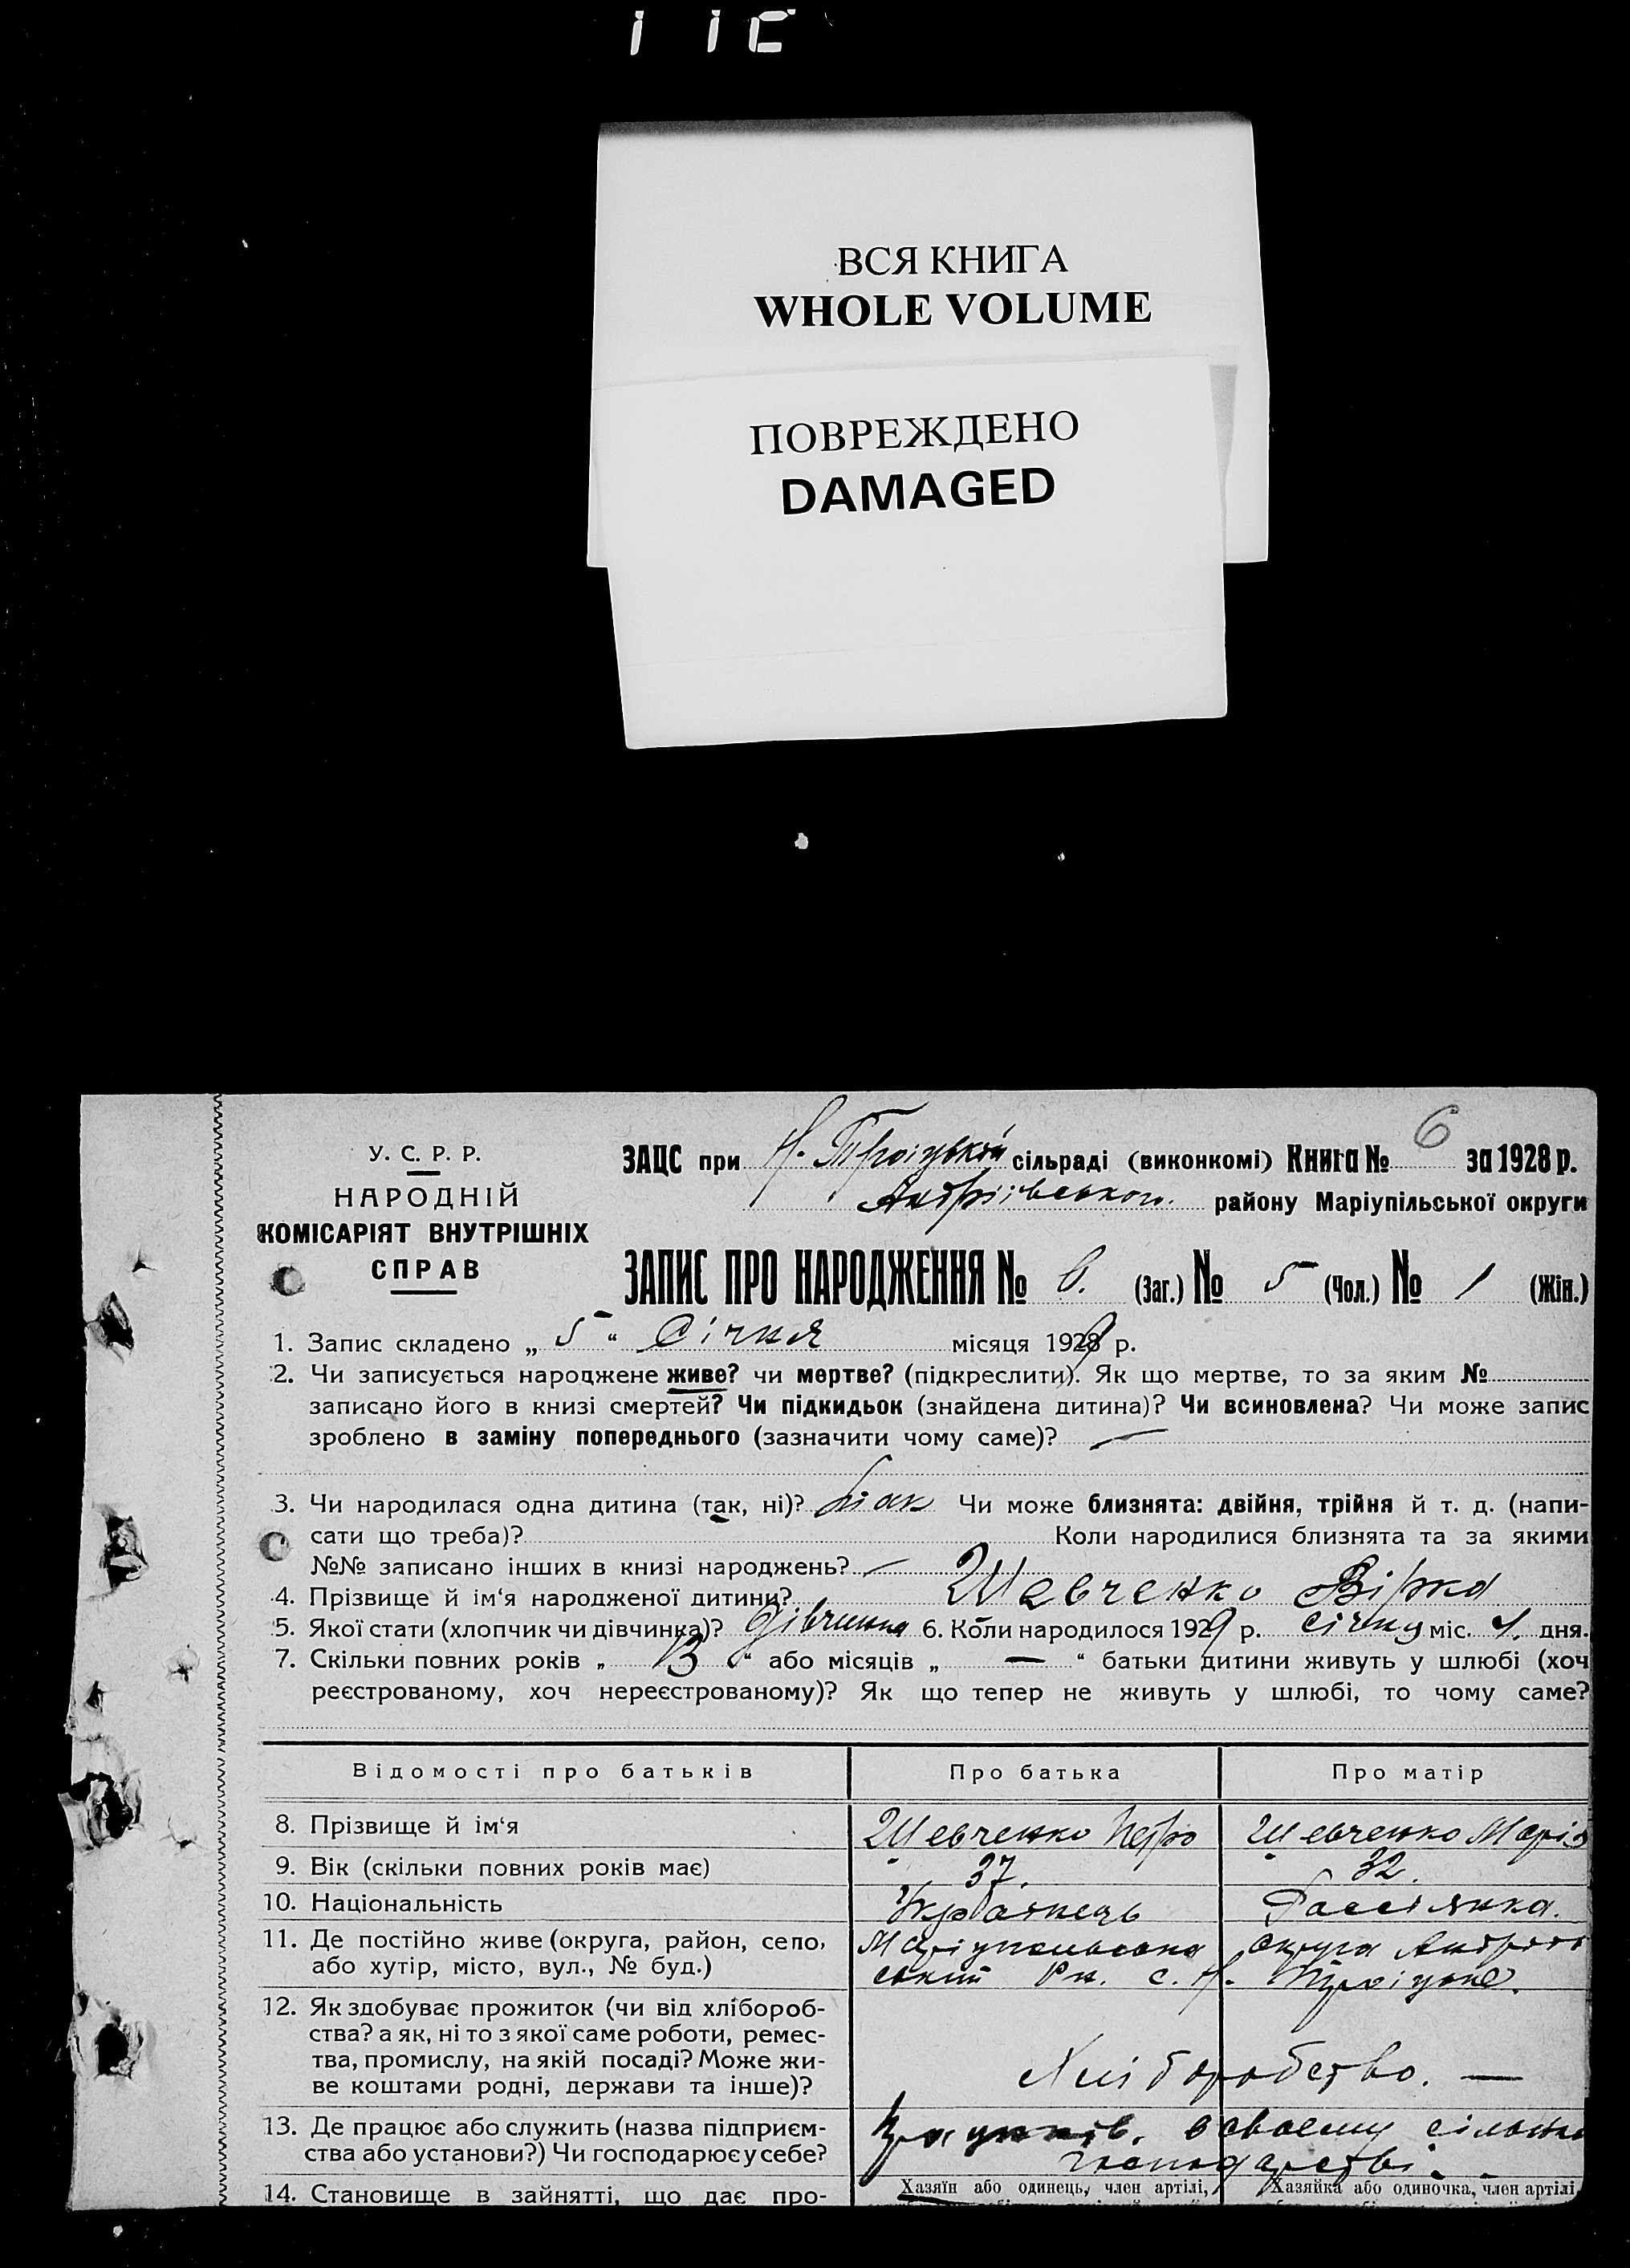 ВСЯ КНИГА
WHOLE VOLUME
ПОВРЕЖДЕНО
DAMAGED
У. С. Р. Р.
НАРОДНІЙ
КОМІСАРІЯТ ВНУТРІШНІХ
СПРАВ
ЗАЦС при Н. Троіцькій сільраді (виконкомі) Книга № 6 за 1928 р.
Андріівського району Маріупільської округи
ЗАПИС ПРО НАРОДЖЕННЯ № 6. (Заг.) № 5 (Чол.) № 1 (Жін.)
1. Запис складено „ 5 “ Січня місяця 1929 р.
2. Чи записується народжене живе? чи мертве? (підкреслити). Як що мертве, то за яким №
записано його в книзі смертей? Чи підкидьок (знайдена дитина)? Чи всиновлена? Чи може запис
зроблено в заміну попереднього (зазначити чому саме)? —
3. Чи народилася одна дитина (так, ні)? так Чи може близнята: двійня, трійня й т. д. (напи-
сати що треба)? Коли народилися близнята та за якими
№№ записано інших в книзі народжень? —
4. Прізвище й ім‘я народженої дитини? Шевченко Вірка
5. Якої статі (хлопчик чи дівчинка)? Дівчинка 6. Коли народилося 1929 р. Січня міс. 4. дня.
7. Скільки повних років „ 13 “ або місяців „ — “ батьки дитини живуть у шлюбі (хоч
реєстрованому, хоч нереєстрованому)? Як що тепер не живуть у шлюбі, то чому саме?
Відомості про батьків Про батька Про матір
8. Прізвище й ім‘я Шевченко Петро Шевченко Марія
9. Вік (скільки повних років має) 37. 32.
10. Національність Украінець Россіянка.
11. Де постійно живе (округа, район, село, Маріупольська округа Андріів
або хутір, місто, вул., № буд.) ський Рн. с. Н. Троіцьке.
12. Як здобуває прожиток (чи від хлібороб-
ства? а як, ні то з якої саме роботи, ремес-
тва, промислу, на якій посаді? Може жи-
ве коштами родні, держави та інше)? Хліборобство. —
13. Де працює або служить (назва підприєм- в своему сільск
ства або установи?) Чи господарює у себе? господарстві.
14. Становище в зайнятті, що дає про- Хазяїн або одинець, член артілі, Хазяйка або одиночка, член артілі,